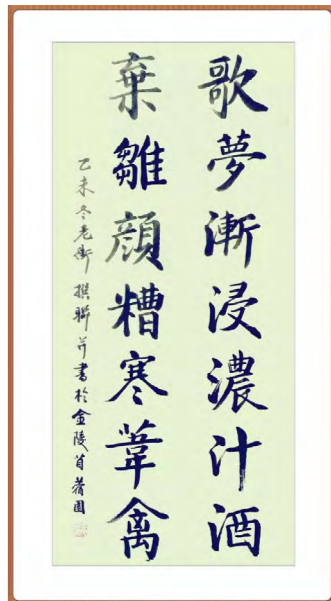 歌夢漸浸濃汁酒
棄雛顔糟寒葦禽
乙未冬老衛撰聯并書於金陵首蒲園